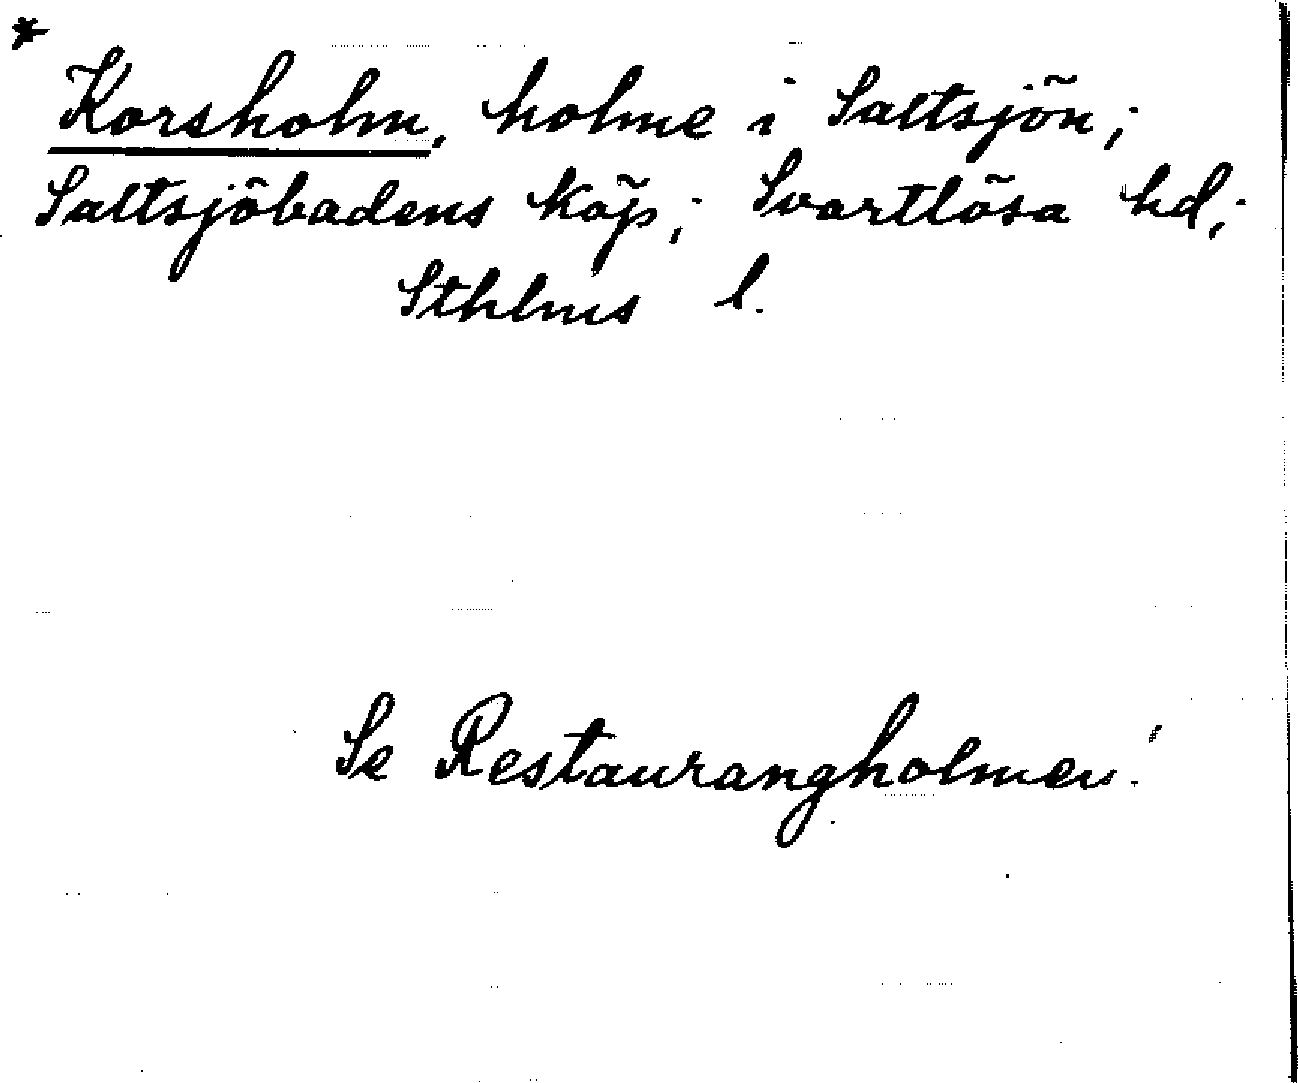 * Korsholm, holme i Saltsjön;
Saltsjöbadens köp; Svartlösa hd;
Sthlms l.
Se Restaurangholmen!